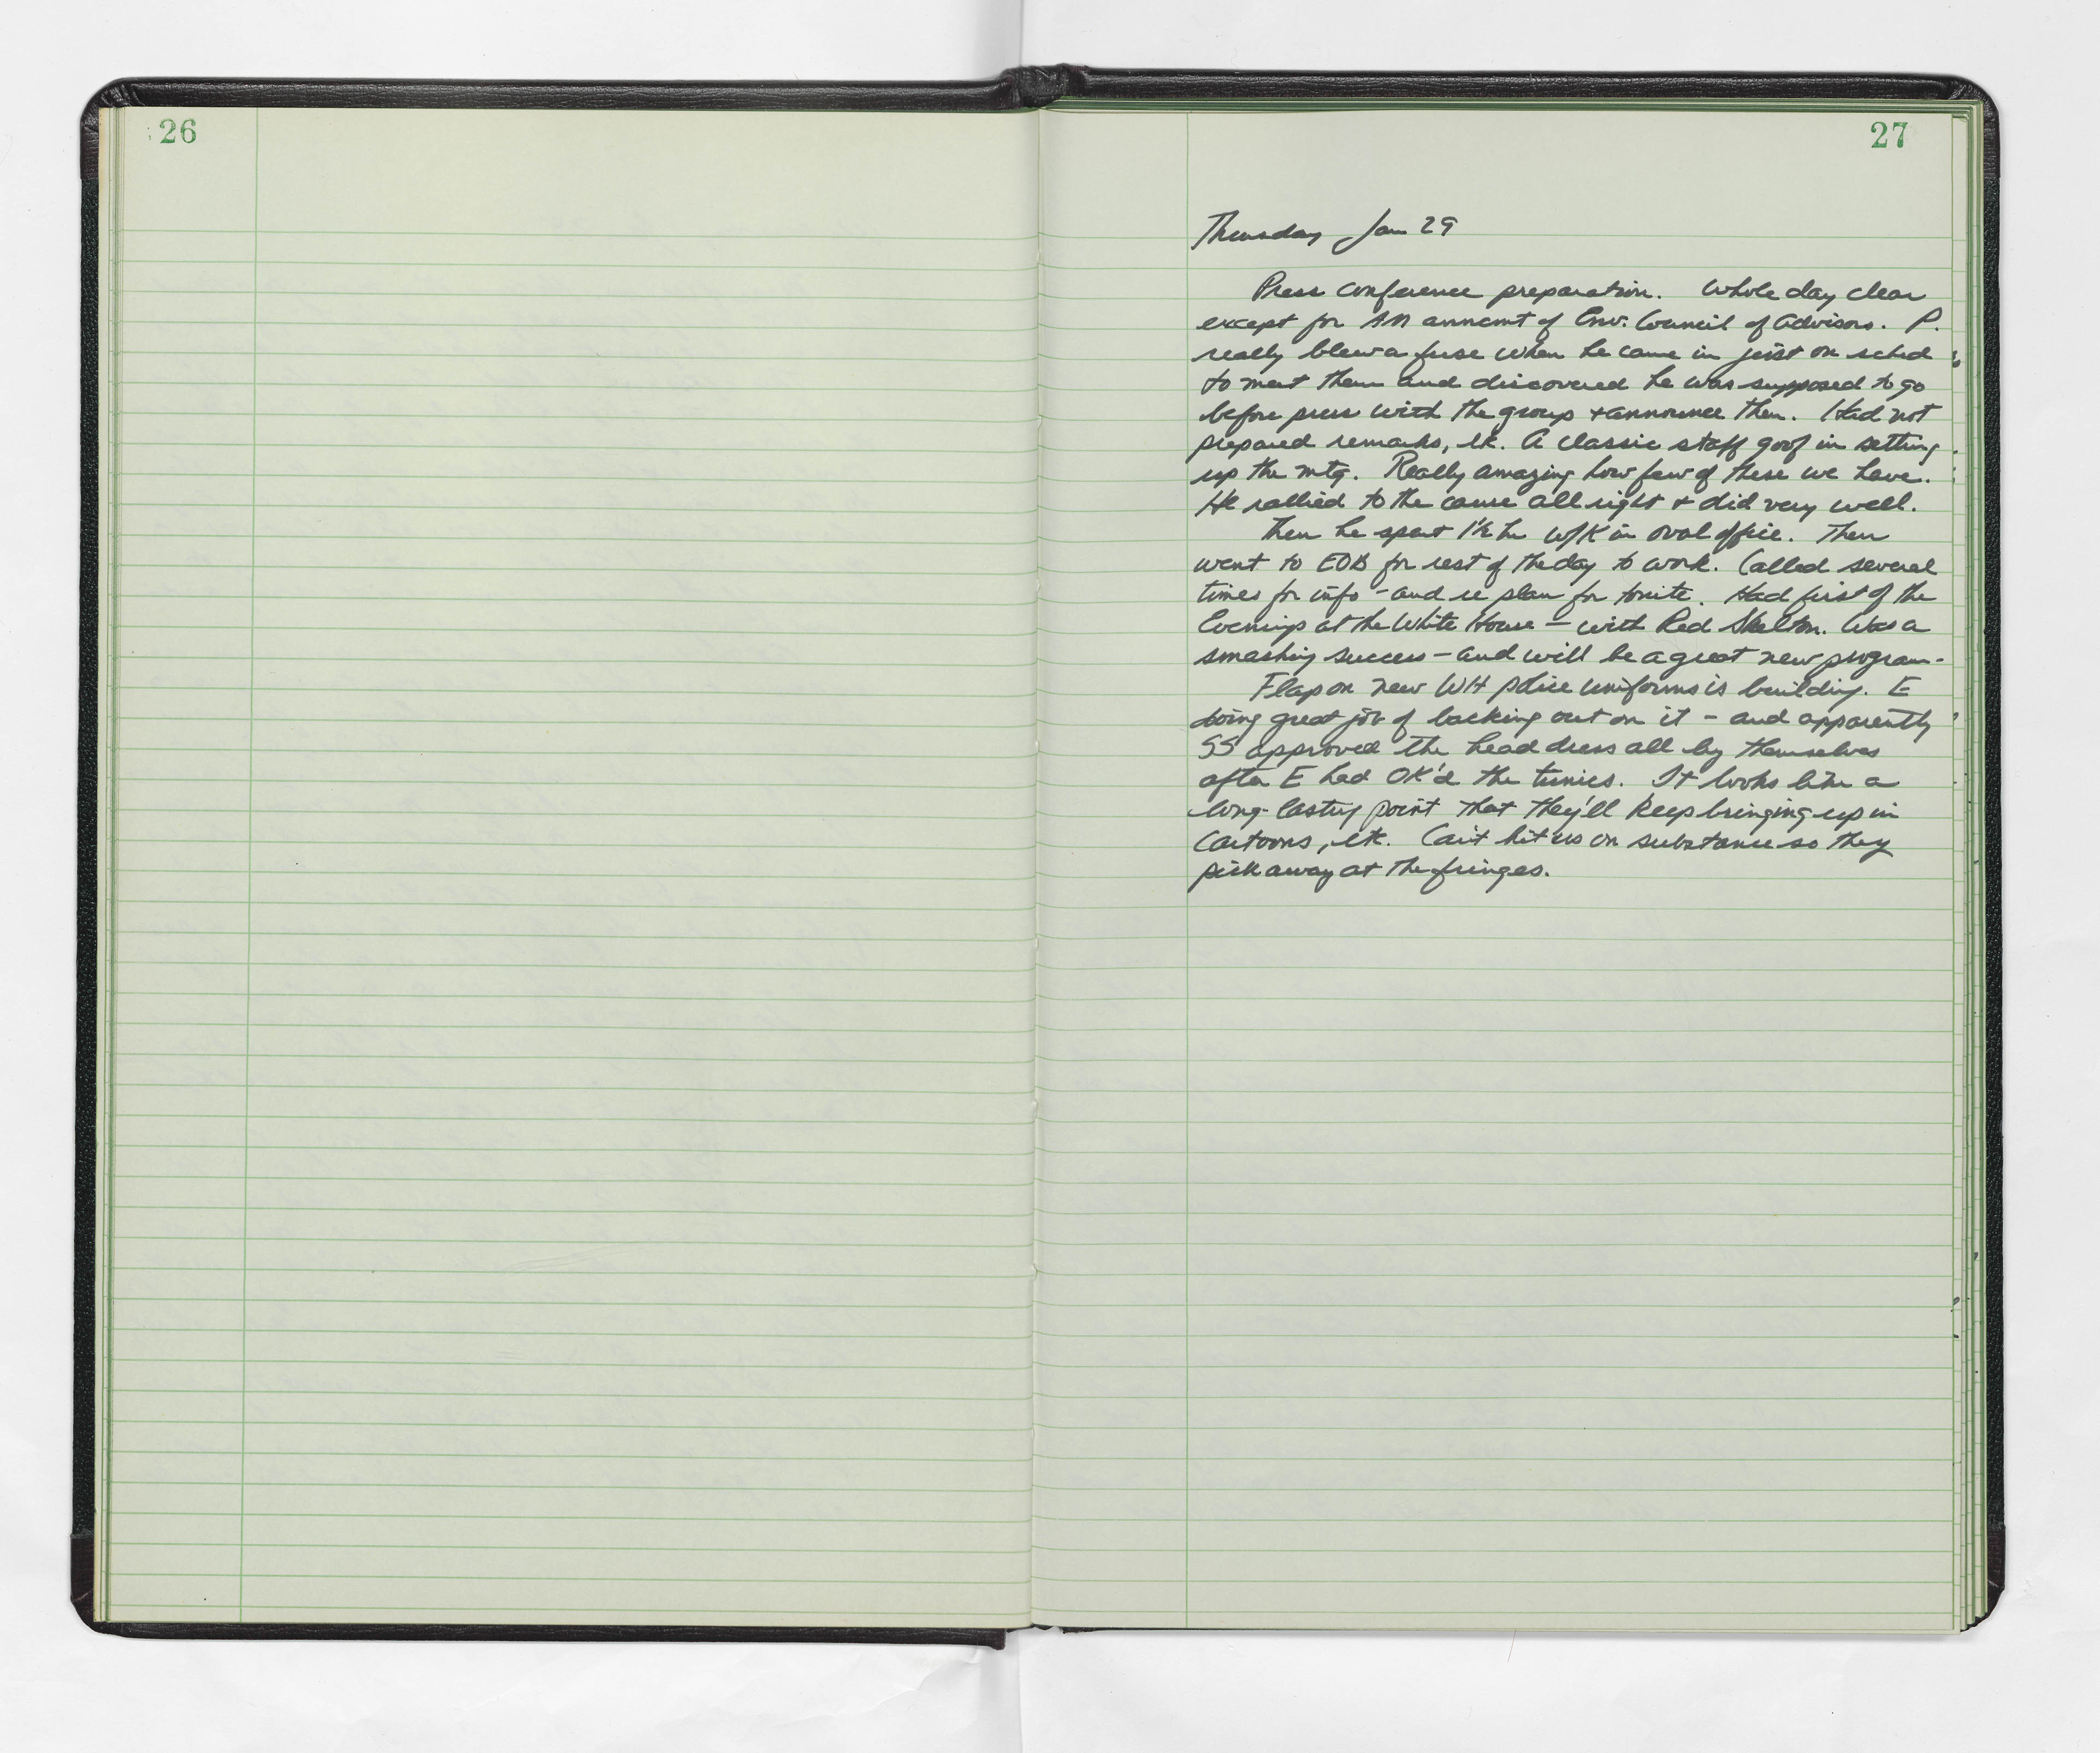 26
27
Thursday Jan 29
Press conference preparation. Whole day clear
except for AM anncmt of Env. Council of Advisors. P.
really blew a fuse when he came in just on sched
to meet them and discovered he was supposed to go
before press with the group + announce them. Had not
prepared remarks, etc. A classic staff goof in setting
up the mtg. Really amazing how few of these we have.
He rallied to the cause all right + did very well.
Then he spent 1½ hr w/K in oval office. Then
went to EOB for rest of the day to work. Called several
times for info - and re plan for tonite. Had first of the
Evenings at the White House - with Red Skelton. Was a
smashing success - and will be a great new program.
Flap on new WH police uniforms is building. E
doing great job of backing out on it - and apparently
SS approved the head dress all by themselves
after E had OK'd the tunics. It looks like a
long-lasting point that they'll keep bringing up in
cartoons, etc. Can't hit us on substance so they
pick away at the fringes.